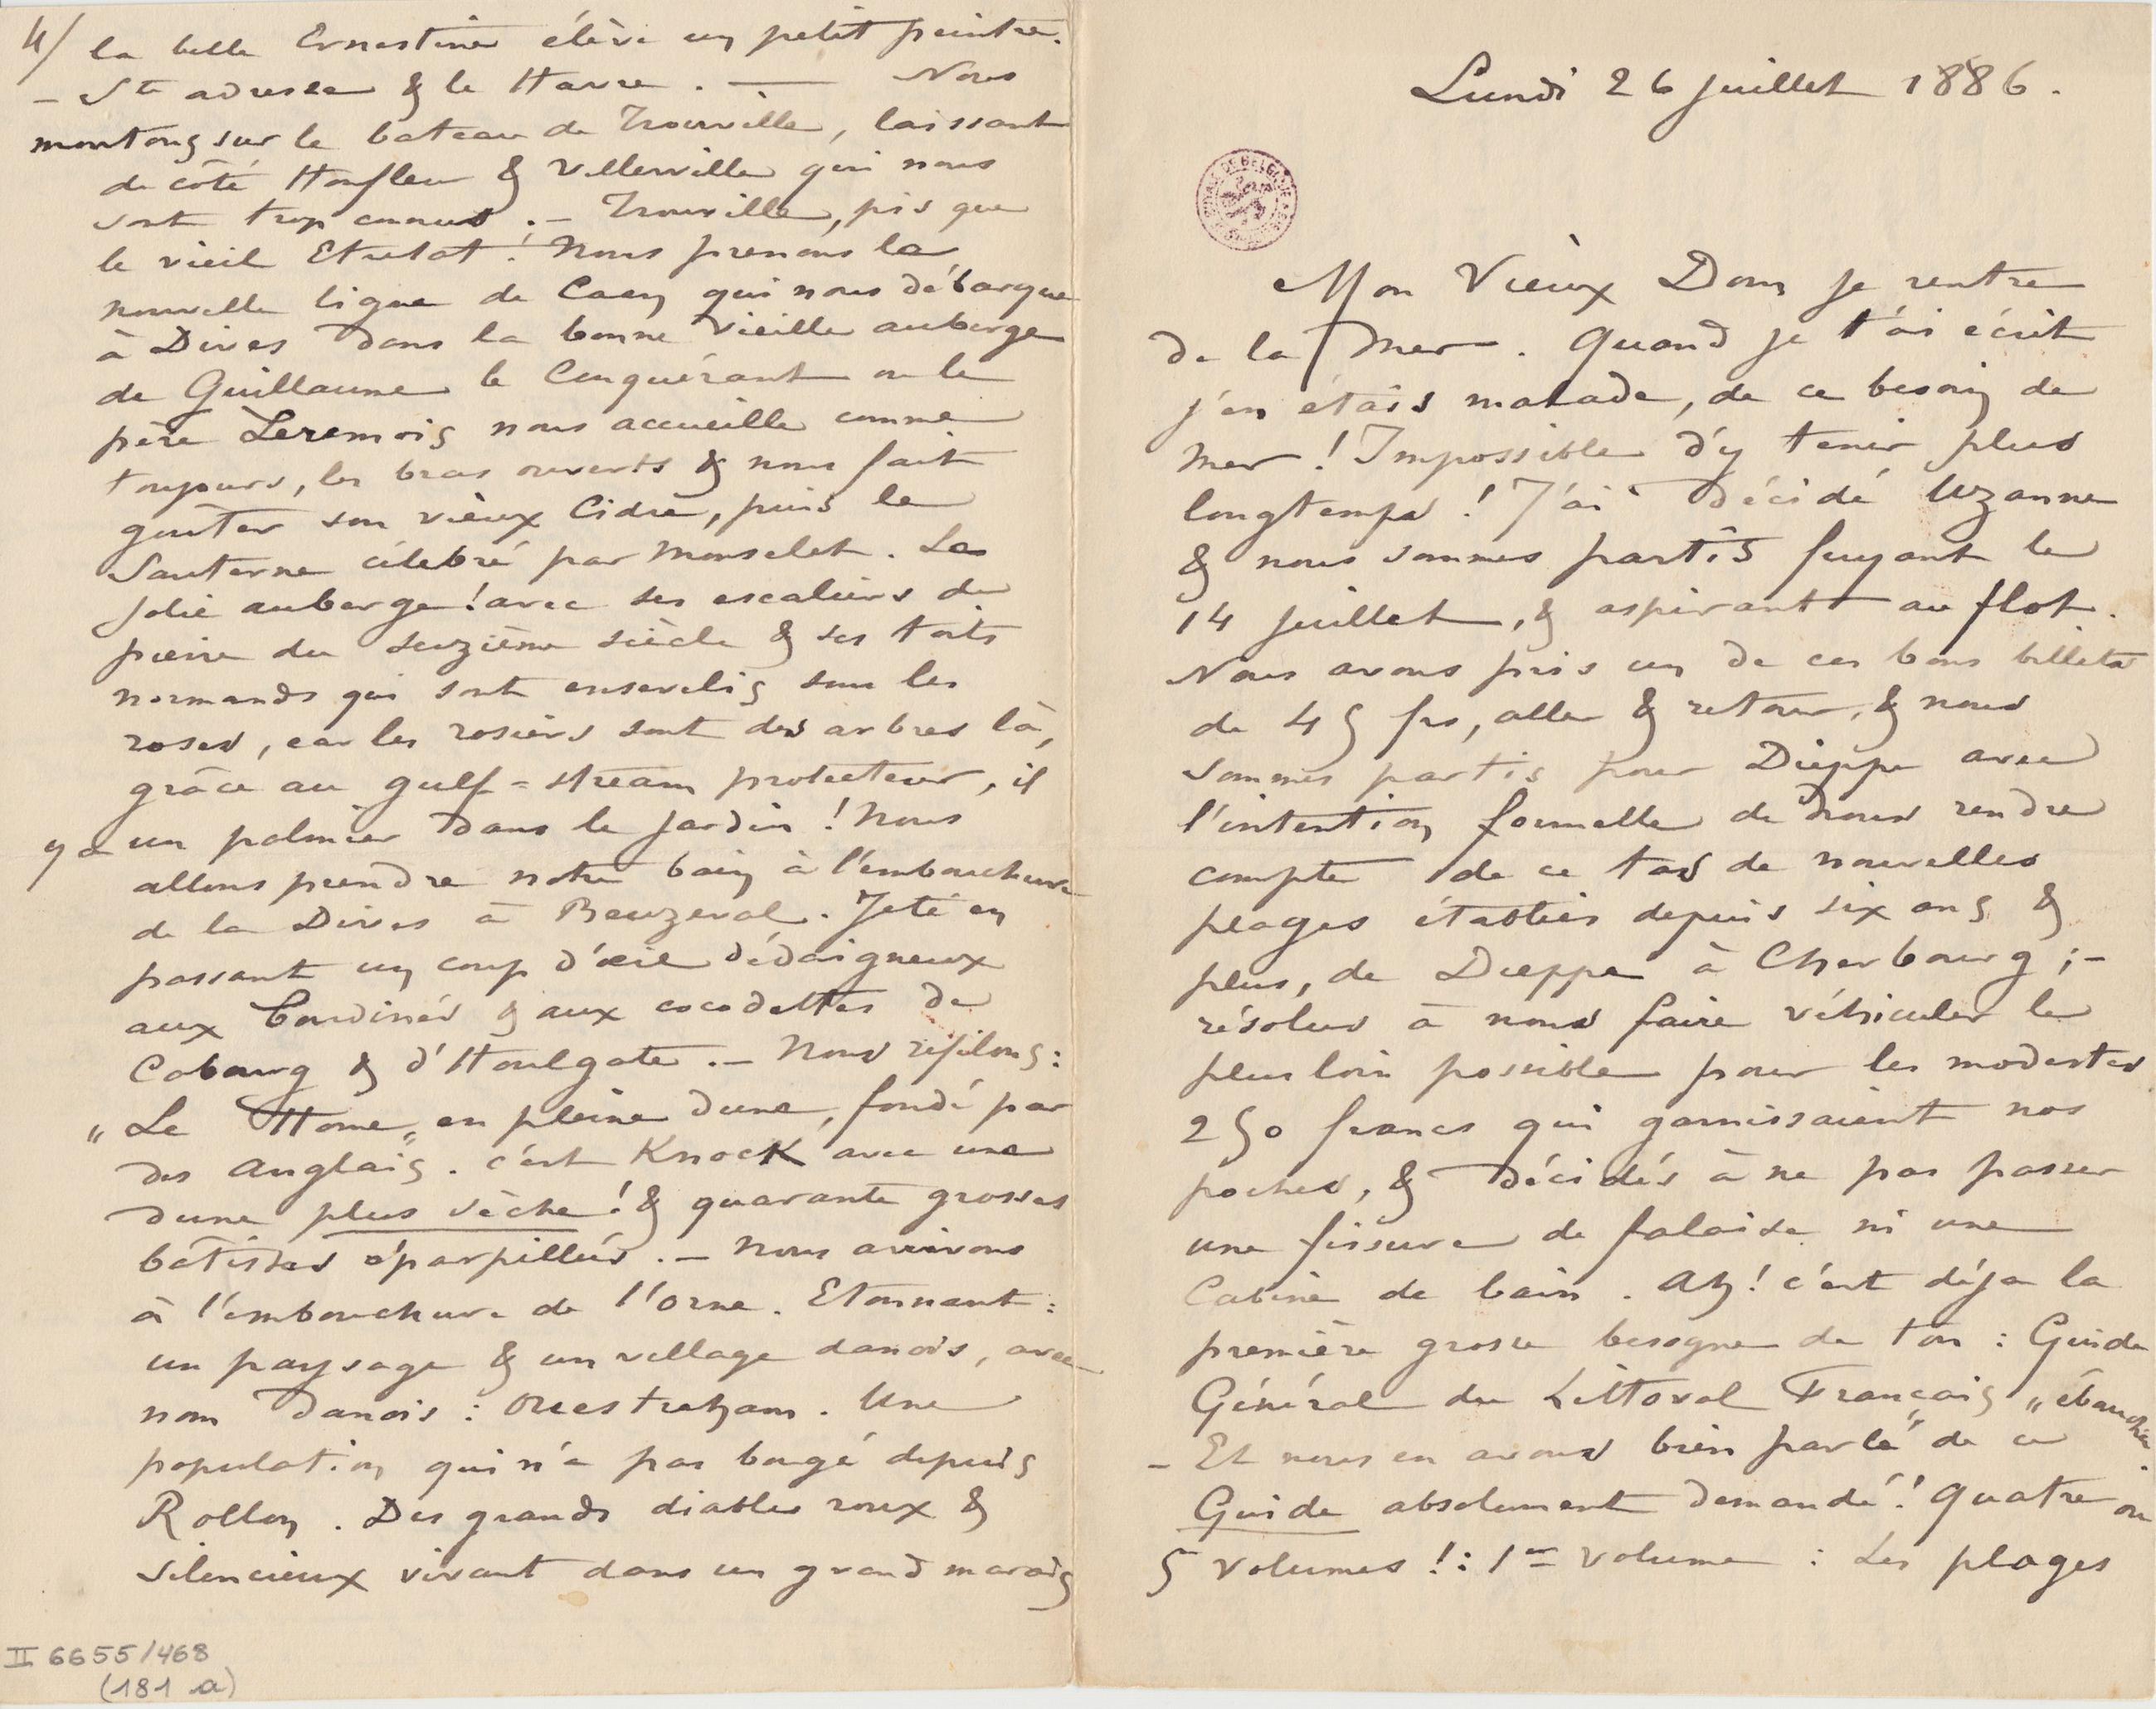 Lundi 26 juillet 1886.
Mon Vieux Dom je rentre
de la mer. Quand je t'ai écrit
j'en étais malade, de ce besoin de
mer ! Impossible d'y tenir plus
longtemps ! J'ai décidé Uzanne
& nous sommes partis fuyant le
14 juillet, & aspirant au flot.
Nous avons pris un de ces bons billets
de 45 frs, aller & retour, & nous
sommes partis pour Dieppe avec
l'intention formelle de nous rendre
compte de ce tas de nouvelles
plages établies depuis six ans &
plus, de Dieppe à Cherbourg ; –
résolus à nous faire véhiculer le
plus loin possible pour les modestes
250 francs qui garnissaient nos
poches, & décidés à ne pas passer
une fissure de falaise ni une
Cabine de bain. Ah ! c'est déja la
première grosse besogne de ton : Guide
Général du Littoral Français " ébauchée
– Et nous en avons bien parlé de ce
Guide absolument demandé ! Quatre ou
5 volumes ! : 1er volume : Les plages
4/ la belle Ernestine élève un petit peintre.
– Ste adresse & le Havre. — Nous
montons sur le bateau de Trouville, laissant
de côté Honfleur & Villerville qui nous
sont trop connus. – Trouville, pis que
le vieil Etretat ! Nous prenons la
nouvelle ligne de Caen qui nous débarque
à Dives dans la bonne vieille auberge
de Guillaume le Conquérant ou le
père Leremois nous accueille comme
toujours, les bras ouverts & nous fait
gouter son vieux Cidre, puis le
Sauterne célébré par Monselet. La
jolie auberge ! avec ses escaliers de
pierre du seizième siècle & ses toits
normands qui sont ensevelis sous les
roses, car les rosiers sont des arbres là,
grâce au gulf-stream protecteur, il
y a un palmier dans le jardin ! Nous
allons prendre notre bain à l'embouchure
de la Dives à Beuzeval. Jeté en
passant un coup d'œil dédaigneux
aux Gardinés & aux cocodettes de
Cabourg & d'Houlgate. – Nous refilons :
" Le Home " en pleine dune, fondé par
des Anglais. c'est Knock avec une
dune plus sèche ! & quarante grosses
bâtisses éparpillées. – Nous arrivons
à l'embouchure de l'Orne. Etonnant :
un paysage & un village danois, avec
nom danois : Ouestreham. Une
population qui n'a pas bougé depuis
Rollon. Des grands diables roux &
silencieux vivant dans un grand marais
II 6655/468
(181 a)